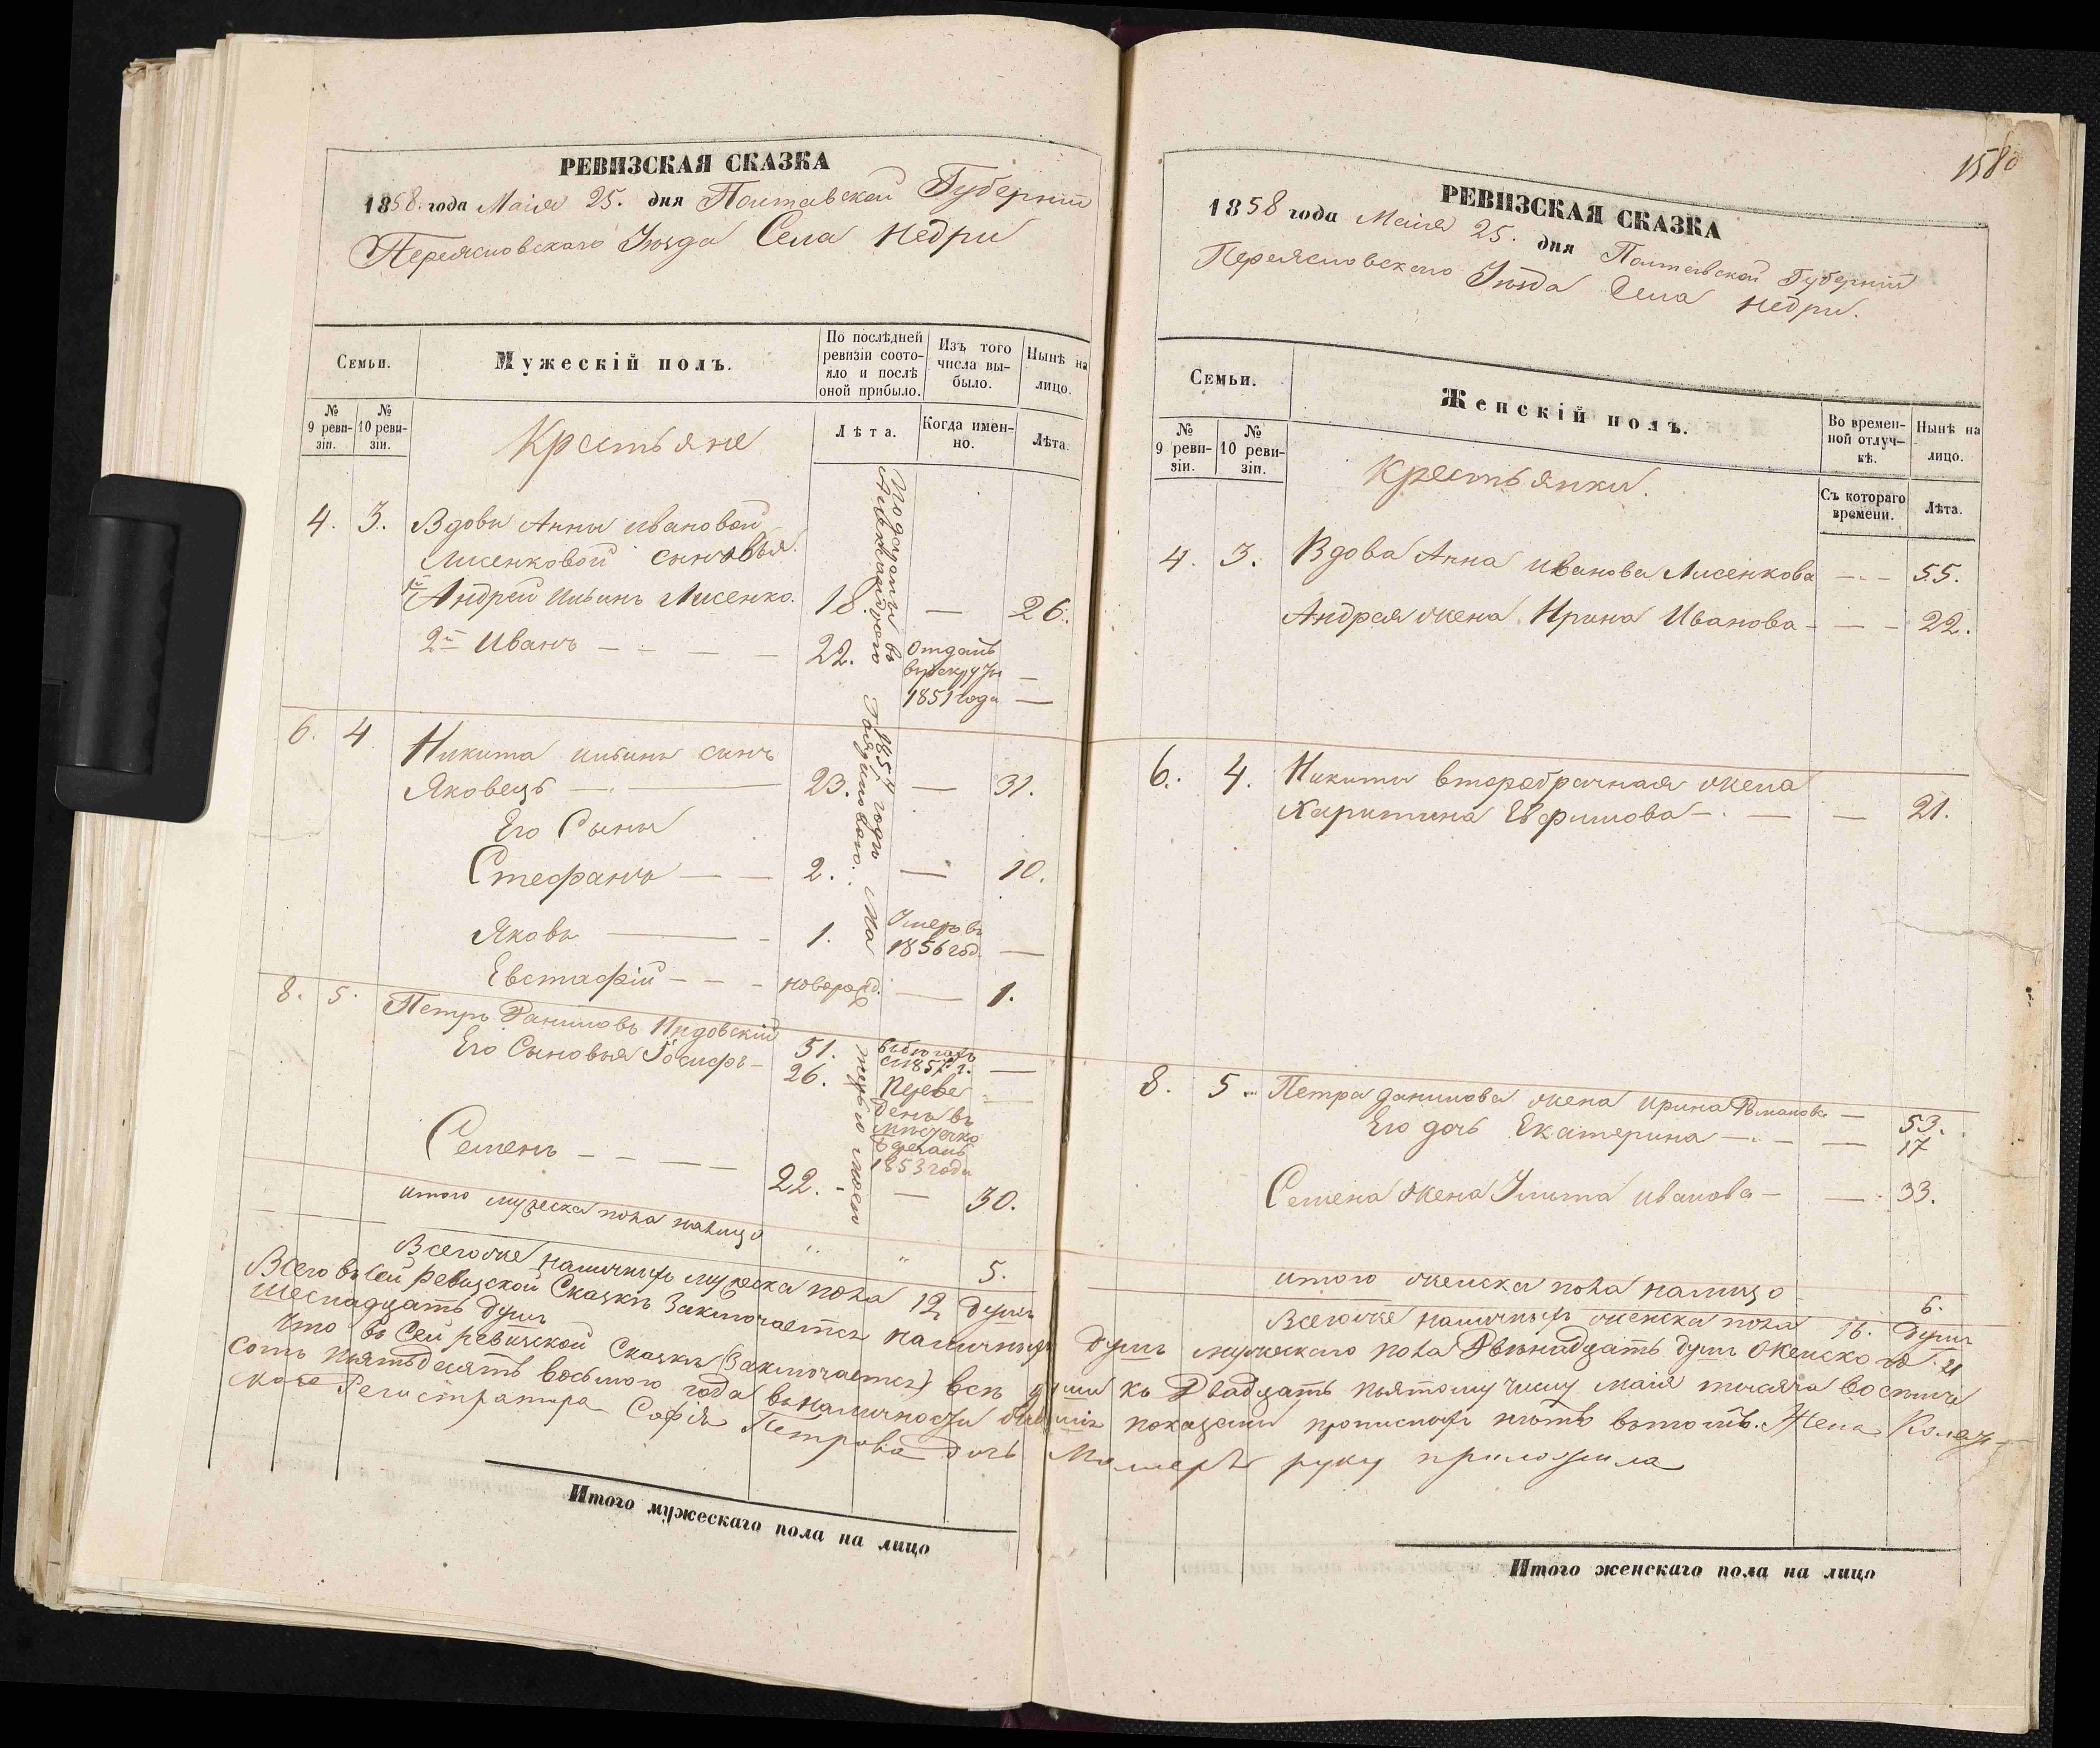 РЕВИЗСКАЯ СКАЗКА
1858. года Маія 25. дня Полтавской Губерніи
Переясловскаго Уезда Села Недри
Семьи.
Мужескій полъ.
По послѣдней ревизіи состояло и послѣ оной прибыло.
Изъ того числа выбыло.
Нынѣ на лицо.
№ 9 ревизіи.
№ 10 ревизіи.
Крестьяне
Лѣта.
Когда именно.
Лѣта.
4. 3. Вдовы Анны Ивановой
Лисенковой сыновья.
1й Андрей Ильинъ Лисенко. 18. — 26.
2й Иванъ — — — — 22. Отданъ
в рекруты —
1851 года —
6. 4. Никита Ильинъ сынъ
Яковецъ — 23. — 31.
Его Сыны
Стефанъ — — 2. — 10.
Яковъ — 1. Умеръ въ
1856 год. —
Евстафій — — — новорожд. — 1.
8. 5. Петръ Даниловъ
51. —
Его Сыновья Іосифъ — 26. Переве
денъ въ
мѣстечко
1853 года
Семенъ — — — — 22. — — 30.
1854 года
итого мужеска пола налицо " " 5.
Всего же наличныхъ мужеска пола 12 душъ
Всего въ сей ревизской Сказкѣ Заключается наличныхъ душъ мужескаго пола Двѣнадцать душъ Женского и
Шеснадцать душъ
Что въ Сей ревизской Сказкѣ (Заключается) всѣ души къ Двадцать пьятому числу маія тысяча восемь
сотъ пятьдесятъ восьмого года въ наличности показаны прописныхъ нѣтъ въ томъ. Жена Колеж
ского Регистратора Софія Петрова дочь руку приложила
Итого мужескаго пола на лицо
1580
РЕВИЗСКАЯ СКАЗКА
1858 года Маія 25. дня Полтавской Губерніи
Переясловскаго Уезда Села Недри.
Семьи.
Женскій полъ.
Во временной отлучкѣ.
Нынѣ на лицо.
№ 9 ревизіи.
№ 10 ревизіи.
Крестьянки.
Съ котораго времени.
Лѣта.
4. 3. Вдова Анна Иванова Лисенкова — — 55.
Андрея жена Ирина Иванова — — — 22.
6. 4. Никиты второбрачная жена
Харитина Евфимова — — — 21.
8. 5. Петра Данилова жена Ирина Романова — 53.
Его дочь Екатерина — — — 17
Семена жена Улита Иванова — — 33.
итого женска пола налицо 6.
Всего же наличныхъ женска пола 16. Душъ
Итого женскаго пола на лицо